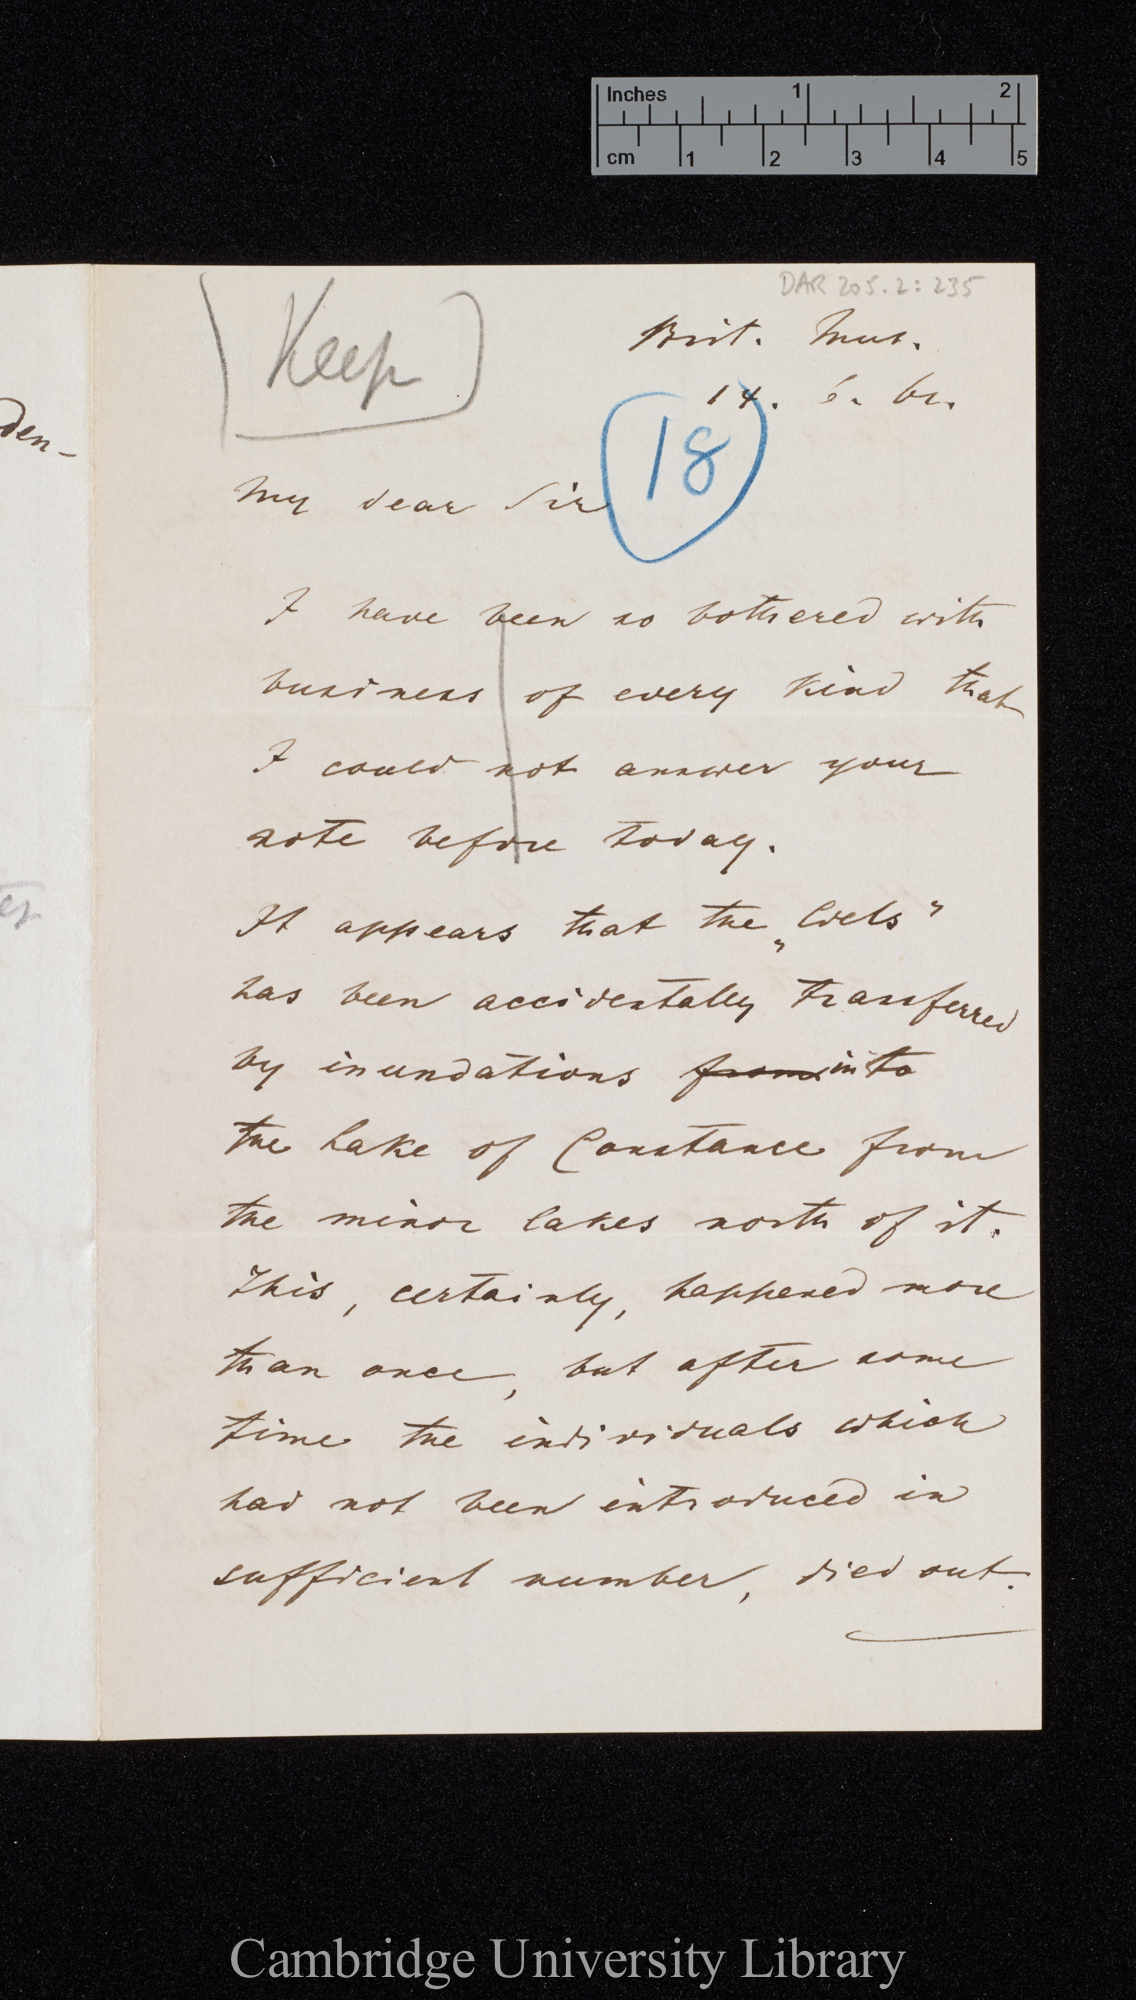 Inches 1 2
cm 1 2 3 4 5
DAR 205.2:235
Keep
Brit. Mus.
14. 6. 62.
18
My dear Sir
I have been so bothered with
business of every kind that
I could not answer your
note before today.
It appears that the „Wels”
has been accidentally transferred
by inundations from into
the Lake of Constance from
the minor lakes north of it.
This, certainly, happened more
than once, but after some
time the individuals which
had not been introduced in
sufficient number, died out.
den-
Cambridge University Library